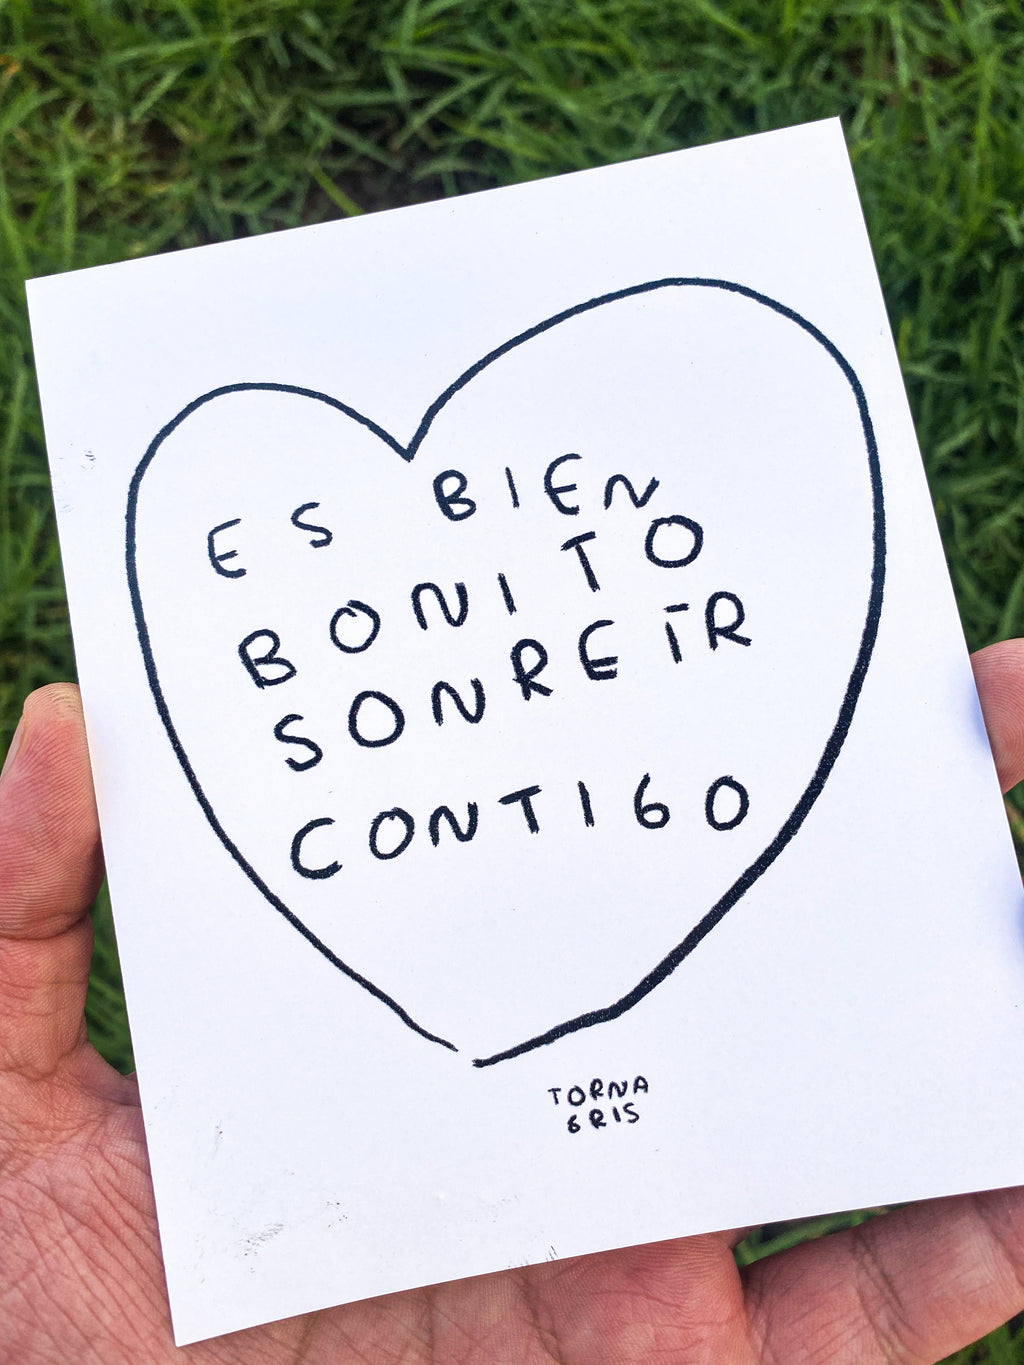 ES BIEN
BONITO
SONREÍR
CONTIGO
TORNA
GRIS